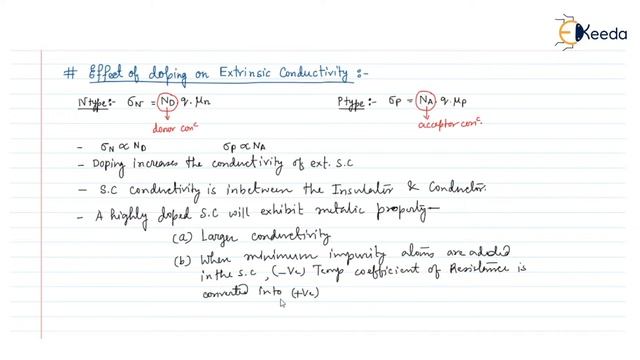 EKeeda
# Effect of doping on Extrinsic Conductivity :-
N type :- σN = ND q. μn
P type :- σP = NA q. μp
donor concⁿ
acceptor concⁿ.
- σN ∝ ND σP ∝ NA
- Doping increases the conductivity of ext. S.C
- S.C conductivity is inbetween the Insulator & Conductor.
- A highly doped S.C will exhibit metalic property—
(a) Larger conductivity
(b) When minimum impurity atoms are added
in the S.C, (-Ve) Temp coefficient of Resistance is
converted into (+Ve)